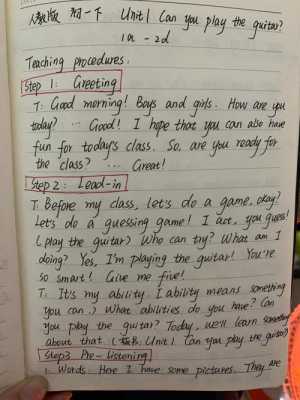 人教版 初一下 Unit 1 Can you play the guitar?
1a - 2d
Teaching procedures:
Step 1: Greeting
T: Good morning! Boys and girls. How are you
today? ... Good! I hope that you can also have
fun for today's class. So, are you ready for
the class? ... Great!
Step 2: Lead-in
T: Before my class, let's do a game, okay?
Let's do a guessing game! I act, you guess!
(play the guitar) Who can try? What am I
doing? Yes, I'm playing the guitar! You're
so smart! Give me five!
T: It's my ability. (ability means something
you can.) What abilities do you have? Can
you play the guitar? Today, we'll learn something
about that. (板书: Unit 1 Can you play the guitar?)
Step3 Pre-listening
1. Words. Here I have some pictures. They are